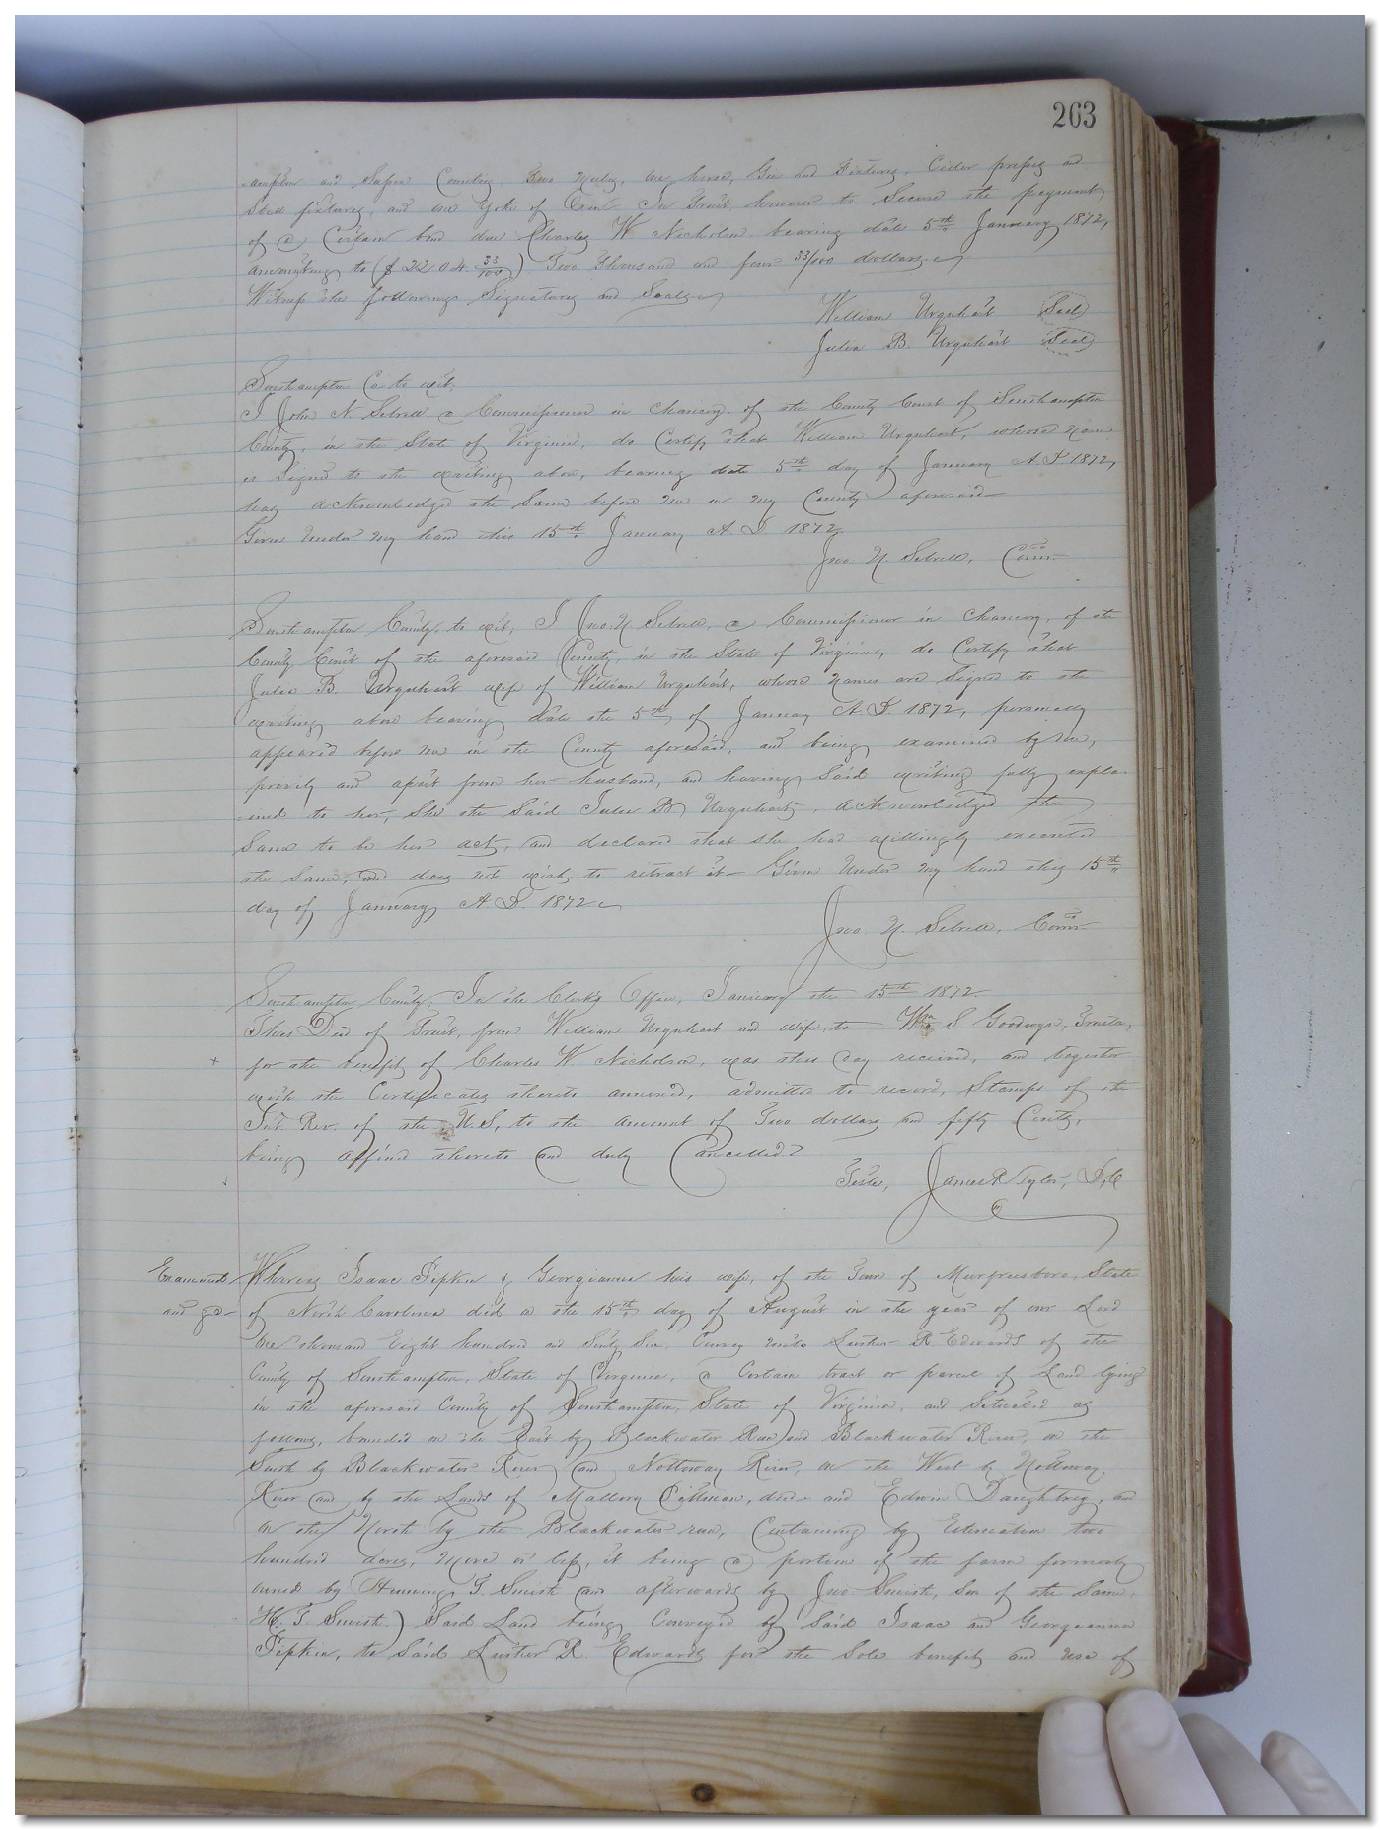 263
-ampton and Sussex Counties Two Mules, one horse, Gin and Fixtures, Cider presses and
Still fixtures, and one yoke of Oxen In Trust, however to Secure the payment
of a Certain bond due Charles W. Nicholson bearing date 5th January 1872,
amounting to ($2204.33/100) Two Thousand and four 33/100 dollars
Witness the following Signatures and Seals
William Urquhart Seal
Julia B. Urquhart Seal
Southampton Co to wit,
I John N. Sebrell a Commissioner in Chancery of the County Court of Southampton
County, in the State of Virginia, do Certify that William Urquhart, whose name
is Signed to the writing above, bearing date 5th day of January A.D 1872,
has acknowledged the Same before me in my County aforesaid
Given Under my hand this 15th January A.D 1872
Jno. N. Sebrell, Comr
Southampton County, to wit, I Jno. N. Sebrell, a Commissioner in Chancery, of the
County Court of the aforesaid County, in the State of Virginia, do Certify that
Julia B. Urquhart wife of William Urquhart, whose names are Signed to the
writing above bearing date the 5th of January A.D. 1872, personally
appeared before me in the County aforesaid, and being examined by me,
privily and apart from her husband, and having Said writing fully expla-
-ined to her, She the Said Julia B Urquhart, acknowledged the
Same to be her act, and declared that she had willingly executed
the Same, and does not wish to retract it Given Under my hand this 15th
day of January A D. 1872
Jno. N. Sebrell, Comr
Southampton County, In the Clerk's Office, January the 15th 1872
This Deed of Trust, from William Urquhart and wife, to Wm S Goodwyn, Trustee,
for the benefit of Charles W Nicholson, was this day received, and together
with the Certificates thereto annexed, admitted to record, Stamps of the
Int. Rev. of the U.S, to the amount of Two dollars and fifty Cents,
being affixed thereto and duly Cancelled
Teste, James R Tyler, D,C
Examined and
Whereas Isaac Pipkin & Georgianna his wife, of the Town of Murfreesboro, State
of North Carolina did on the 15th day of August in the year of our Lord
one thousand Eight hundred and Sixty Convey unto Luther R Edwards of the
County of Southampton, State of Virginia, a Certain tract or parcel of Land lying
in the aforesaid County of Southampton, State of Virginia, and Situated as
follows, bounded on the East by Blackwater Run and Blackwater River, on the
South by Blackwater River and Nottoway River, on the West by Nottoway
River and by the Lands of Mallory decd and Edwin Daughtrey, and
on the North by the Blackwater run, Containing by Estimation two
hundred acres, more or less, it being a portion of the farm formerly
owned by T. Smith and afterwards by Jno Smith, Son of the Same,
H. T. Smith) Said Land being Conveyed by Said Isaac and Georgianna
Pipkin, to Said Luther R. Edwards for the Sole benefit and use of